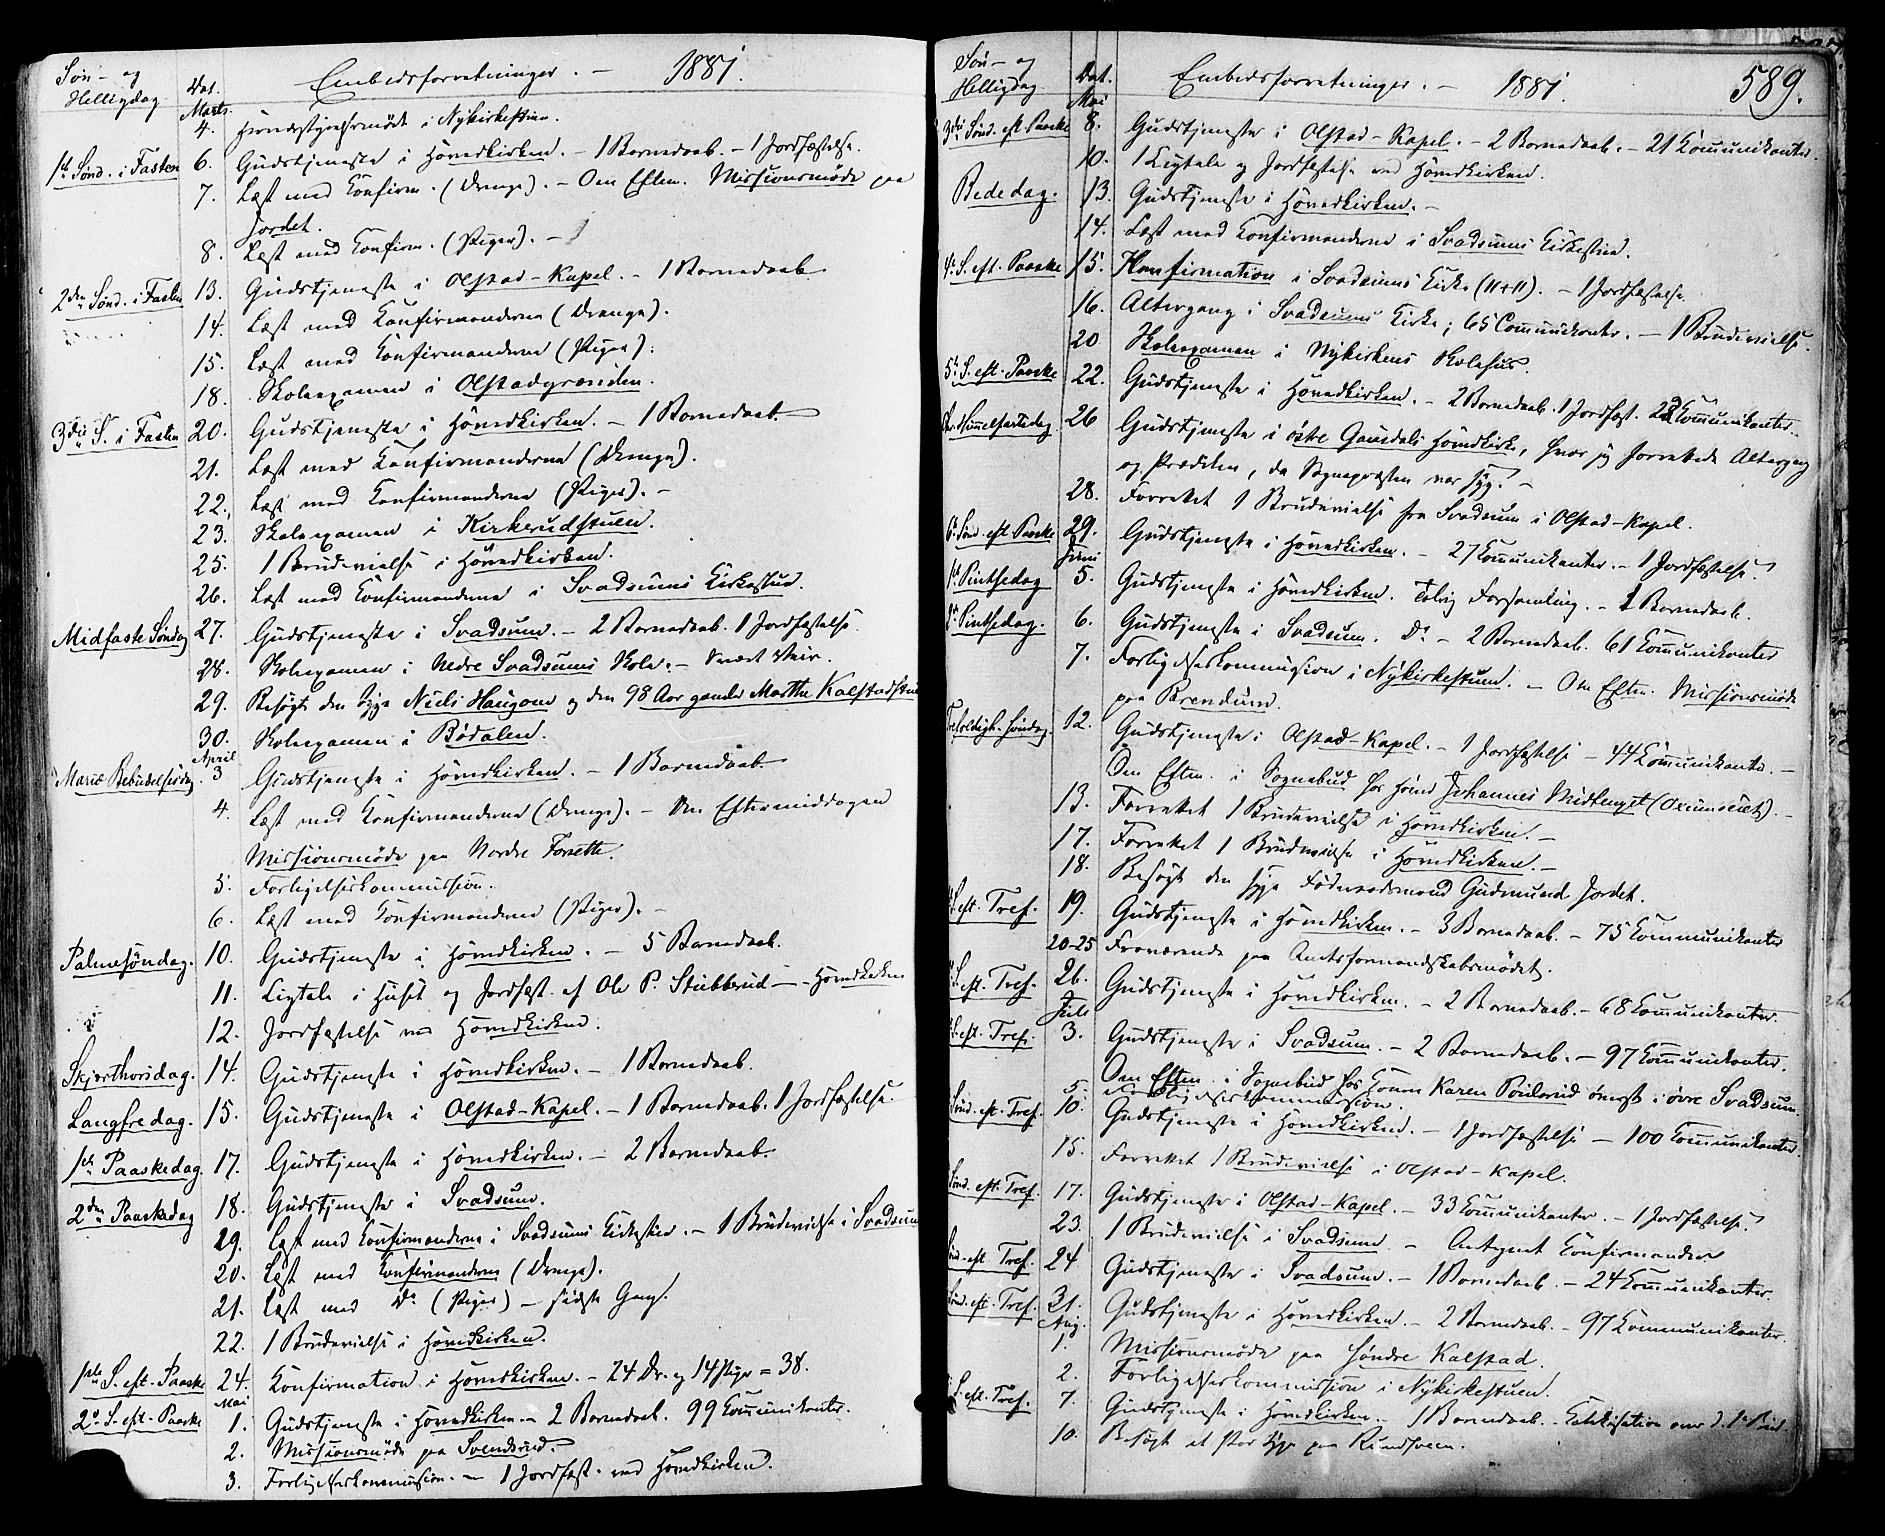 Søn- og Helligdag Dat. Embedsforretninger. – 1881.
Marts
4. Herredsstyrelsesmøde i Nykirkestuen.
1st Sønd. i Fasten 6. Gudstjeneste i Hovedkirken. – 1 Barnedaab. – 1 Jordfæstelse.
7. Læst med Konfirm. (Drenge). – Om Eftm. Missionsmøde paa
Jordet.
8. Læst med Konfirm. (Piger). –
2den Sønd. i Fasten 13. Gudstjeneste i Olstad-Kapel. – 1 Barnedaab
14. Læst med Konfirmanderne (Drenge).
15. Læst med Konfirmanderne (Piger).
18. Skoleexamen i Olstadgrænden.
3die S. i Fasten 20. Gudstjeneste i Hovedkirken. – 1 Barnedaab
21. Læst med Konfirmanderne (Drenge).
22. Læst med Konfirmanderne (Piger). –
23. Skoleexamen i Kirkerudstuen.
25. 1 Brudevielse i Hovedkirken.
26. Læst med Konfirmanderne i Svadsums Kirkestue.
Midfaste Søndag 27. Gudstjeneste i Svadsum. – 2 Barnedaab. 1 Jordfæstelse.
28. Skoleexamen i Nedre Svadsums Skole. – Svært Veir.
29. Besøgt den syge Niels Haugom og den 98 Aar gamle Marthe Kalstadstuen
30. Skoleexamen i Bødalen.
April
Mariæ Bebudelsesdag 3 Gudstjeneste i Hovedkirken. – 1 Barnedaab
4. Læst med Konfirmanderne (Drenge). – Om Eftermiddagen
Missionsmøde paa Nordre Forsette.
5. Forligelseskommission.
6. Læst med Konfirmanderne (Piger). –
Palmesøndag. 10. Gudstjeneste i Hovedkirken. – 5 Barnedaab.
11. Ligtale i Huset og Jordfæst. af Ole P. Stubberud – Hovedkirken
12. Jordfæstelse ved Hovedkirken.
Skjærthorsdag. 14. Gudstjeneste i Hovedkirken. – 1 Barnedaab.
Langfredag. 15. Gudstjeneste i Olstad-Kapel. – 1 Barnedaab. 1 Jordfæstelse.
1ste Paaskedag 17. Gudstjeneste i Hovedkirken. – 2 Barnedaab.
2den Paaskedag 18. Gudstjeneste i Svadsum.
19. Læst med Konfirmanderne i Svadsums Kirkestue. – 1 Brudevielse i Svadsum
20. Læst med Konfirmanderne (Drenge).
21. Læst med Do (Piger) – sidste Gang.
22. 1 Brudevielse i Hovedkirken.
1ste S. eft. Paaske 24. Konfirmation i Hovedkirken. – 24 Dr. og 14 Piger = 38.
Mai
2. S. eft. Paaske 1. Gudstjeneste i Hovedkirken – 2 Barnedaab. 99 Kommunikanter.
2. Missionsmøde paa Svendsrud.
3. Forligelseskommission. – 1 Jordfæst. ved Hovedkirken.
Søn- og Helligdag Dat. Embedsforretninger. – 1881. 589.
Mai
3die Sønd. eft. Paaske 8. Gudstjeneste i Olstad-Kapel. – 2 Barnedaab. – 21 Kommunikanter.
10. 1 Ligtale og Jordfæstelse ved Hovedkirken.
Bededag. 13. Gudstjeneste i Hovedkirken. –
14. Læst med Konfirmanderne i Svadsums Kirkestue.
4. S. eft. Paaske 15. Konfirmation i Svadsums Kirke (11+11). – 1 Jordfæstelse.
16. Altergang i Svadsums Kirke; 65 Communikanter. – 1 Brudevielse.
20 Skoleexamen i Nykirkens Skolehus.
5. S. eft. Paaske 22. Gudstjeneste i Hovedkirken. – 2 Barnedaab. 1 Jordfæst. 28 Kommunikanter.
Chr. Himmelfartsdag 26 Gudstjeneste i østre Gausdals Hovedkirke, hvor jeg forrettede Altergang
og Prædiken, da Sognepræsten var syg. –
28. Forrettet 1 Brudevielse fra Svadsum i Olstad-Kapel.
6. Sønd. eft. Paaske 29. Gudstjeneste i Hovedkirken. – 27 Kommunikanter. – 1 Jordfæstelse.
Juni
1ste Pintsedag 5. Gudstjeneste i Hovedkirken. Talrig Forsamling. – 2 Barnedaab.
2. Pintsedag. 6. Gudstjeneste i Svadsum. Do – 2 Barnedaab. 61 Kommunikanter
7. Forligelseskommission i Nykirkestuen. – Om Eftm. Missionsmøde
paa Brendum.
Trefoldigh. Søndag. 12. Gudstjeneste i Olstad-Kapel. – 1 Jordfæstelse – 44 Kommunikanter. –
Om Eftm. i Sognebud hos Johannes Midtenget –
13. Forrettet 1 Brudevielse i Hovedkirken. –
17. Forrettet 1 Brudevielse i Hovedkirken. –
18. Besøgt den syge Føderaadsmand Gudmund Jordet.
S. eft. Tref. 19. Gudstjeneste i Hovedkirken. – 3 Barnedaab. – 75 Kommunikanter
20-25 Fraværende paa Amtsformandskabsmødet.
S. eft. Tref. 26. Gudstjeneste i Hovedkirken. – 2 Barnedaab. – 68 Kommunikanter.
Juli
S. eft. Tref. 3. Gudstjeneste i Svadsum. – 2 Barnedaab. – 97 Kommunikanter.
Om Eftm. i Sognebud hos Karen øverst i øvre Svadsum
5. Forligelseskommission.
Sønd. eft. Tref. 10. Gudstjeneste i Hovedkirken. – 1 Jordfæstelse – 100 Kommunikanter.
15. Forrettet 1 Brudevielse i Olstad-Kapel.
Sønd. eft. Tref. 17. Gudstjeneste i Olstad-Kapel. – 33 Kommunikanter. – 1 Jordfæstelse.
23. 1 Brudevielse i Svadsum – Antegnet Konfirmander.
Sønd. eft. Tref. 24. Gudstjeneste i Svadsum. – 1 Barnedaab. – 24 Kommunikanter.
Sønd. eft. Tref. 31. Gudstjeneste i Hovedkirken. – 2 Barnedaab. – 97 Kommunikanter.
Aug.
1. Missionsmøde paa Søndre Kalstad.
2. Forligelseskommission i Nykirkestuen.
S. eft. Tref. 7. Gudstjeneste i Hovedkirken. – 1 Barnedaab. Katekisation over d. 1. Bud.
10. Besøgt et Par Syge paa Rundsveen.